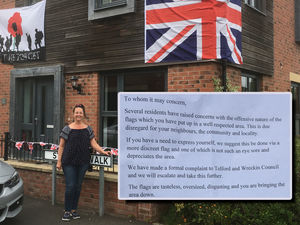 To whom it may concern,
Several residents have raised concerns with the offensive nature of the
flags which you have put up in a well respected area. This is due
disregard for your neighbours, the community and locality.
If you have a need to express yourself, we suggest this be done via a
more discreet flag and one of which is not such an eye sore and
depreciates the area.
We have made a formal complaint to Telford and Wreckin Council
and we will escalate and take this further.
The flags are tasteless, oversized, disgusting and you are bringing the
area down.
WALK